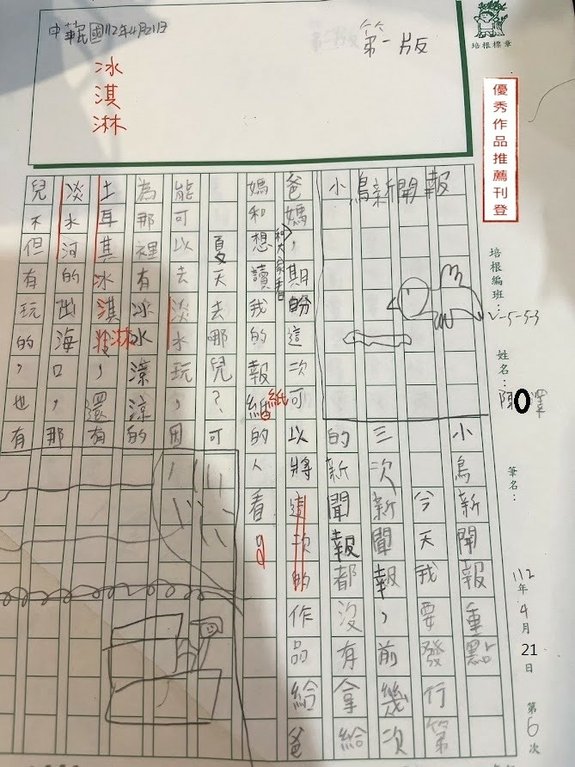 中華民國112年4月21日
第一版
冰淇淋
培根標章
優秀作品推薦刊登
培根編班
V-5-53
姓名：陳 澤
筆名：
112年4月21日 第6次
小鳥新聞報
小鳥新聞報重點
今天我要發行第
三次新聞報，前幾次
的新聞報都沒有拿給
爸媽，期盼這次可以將這次的作品給爸
媽和想讀我的報紙的人看。
紙
夏天去哪兒？可
能可以去淡水玩，因
為那裡有冰冰涼涼的
土耳其冰淇淋，還有
淋
淡水河的出海口，那
兒不但有玩的，也有